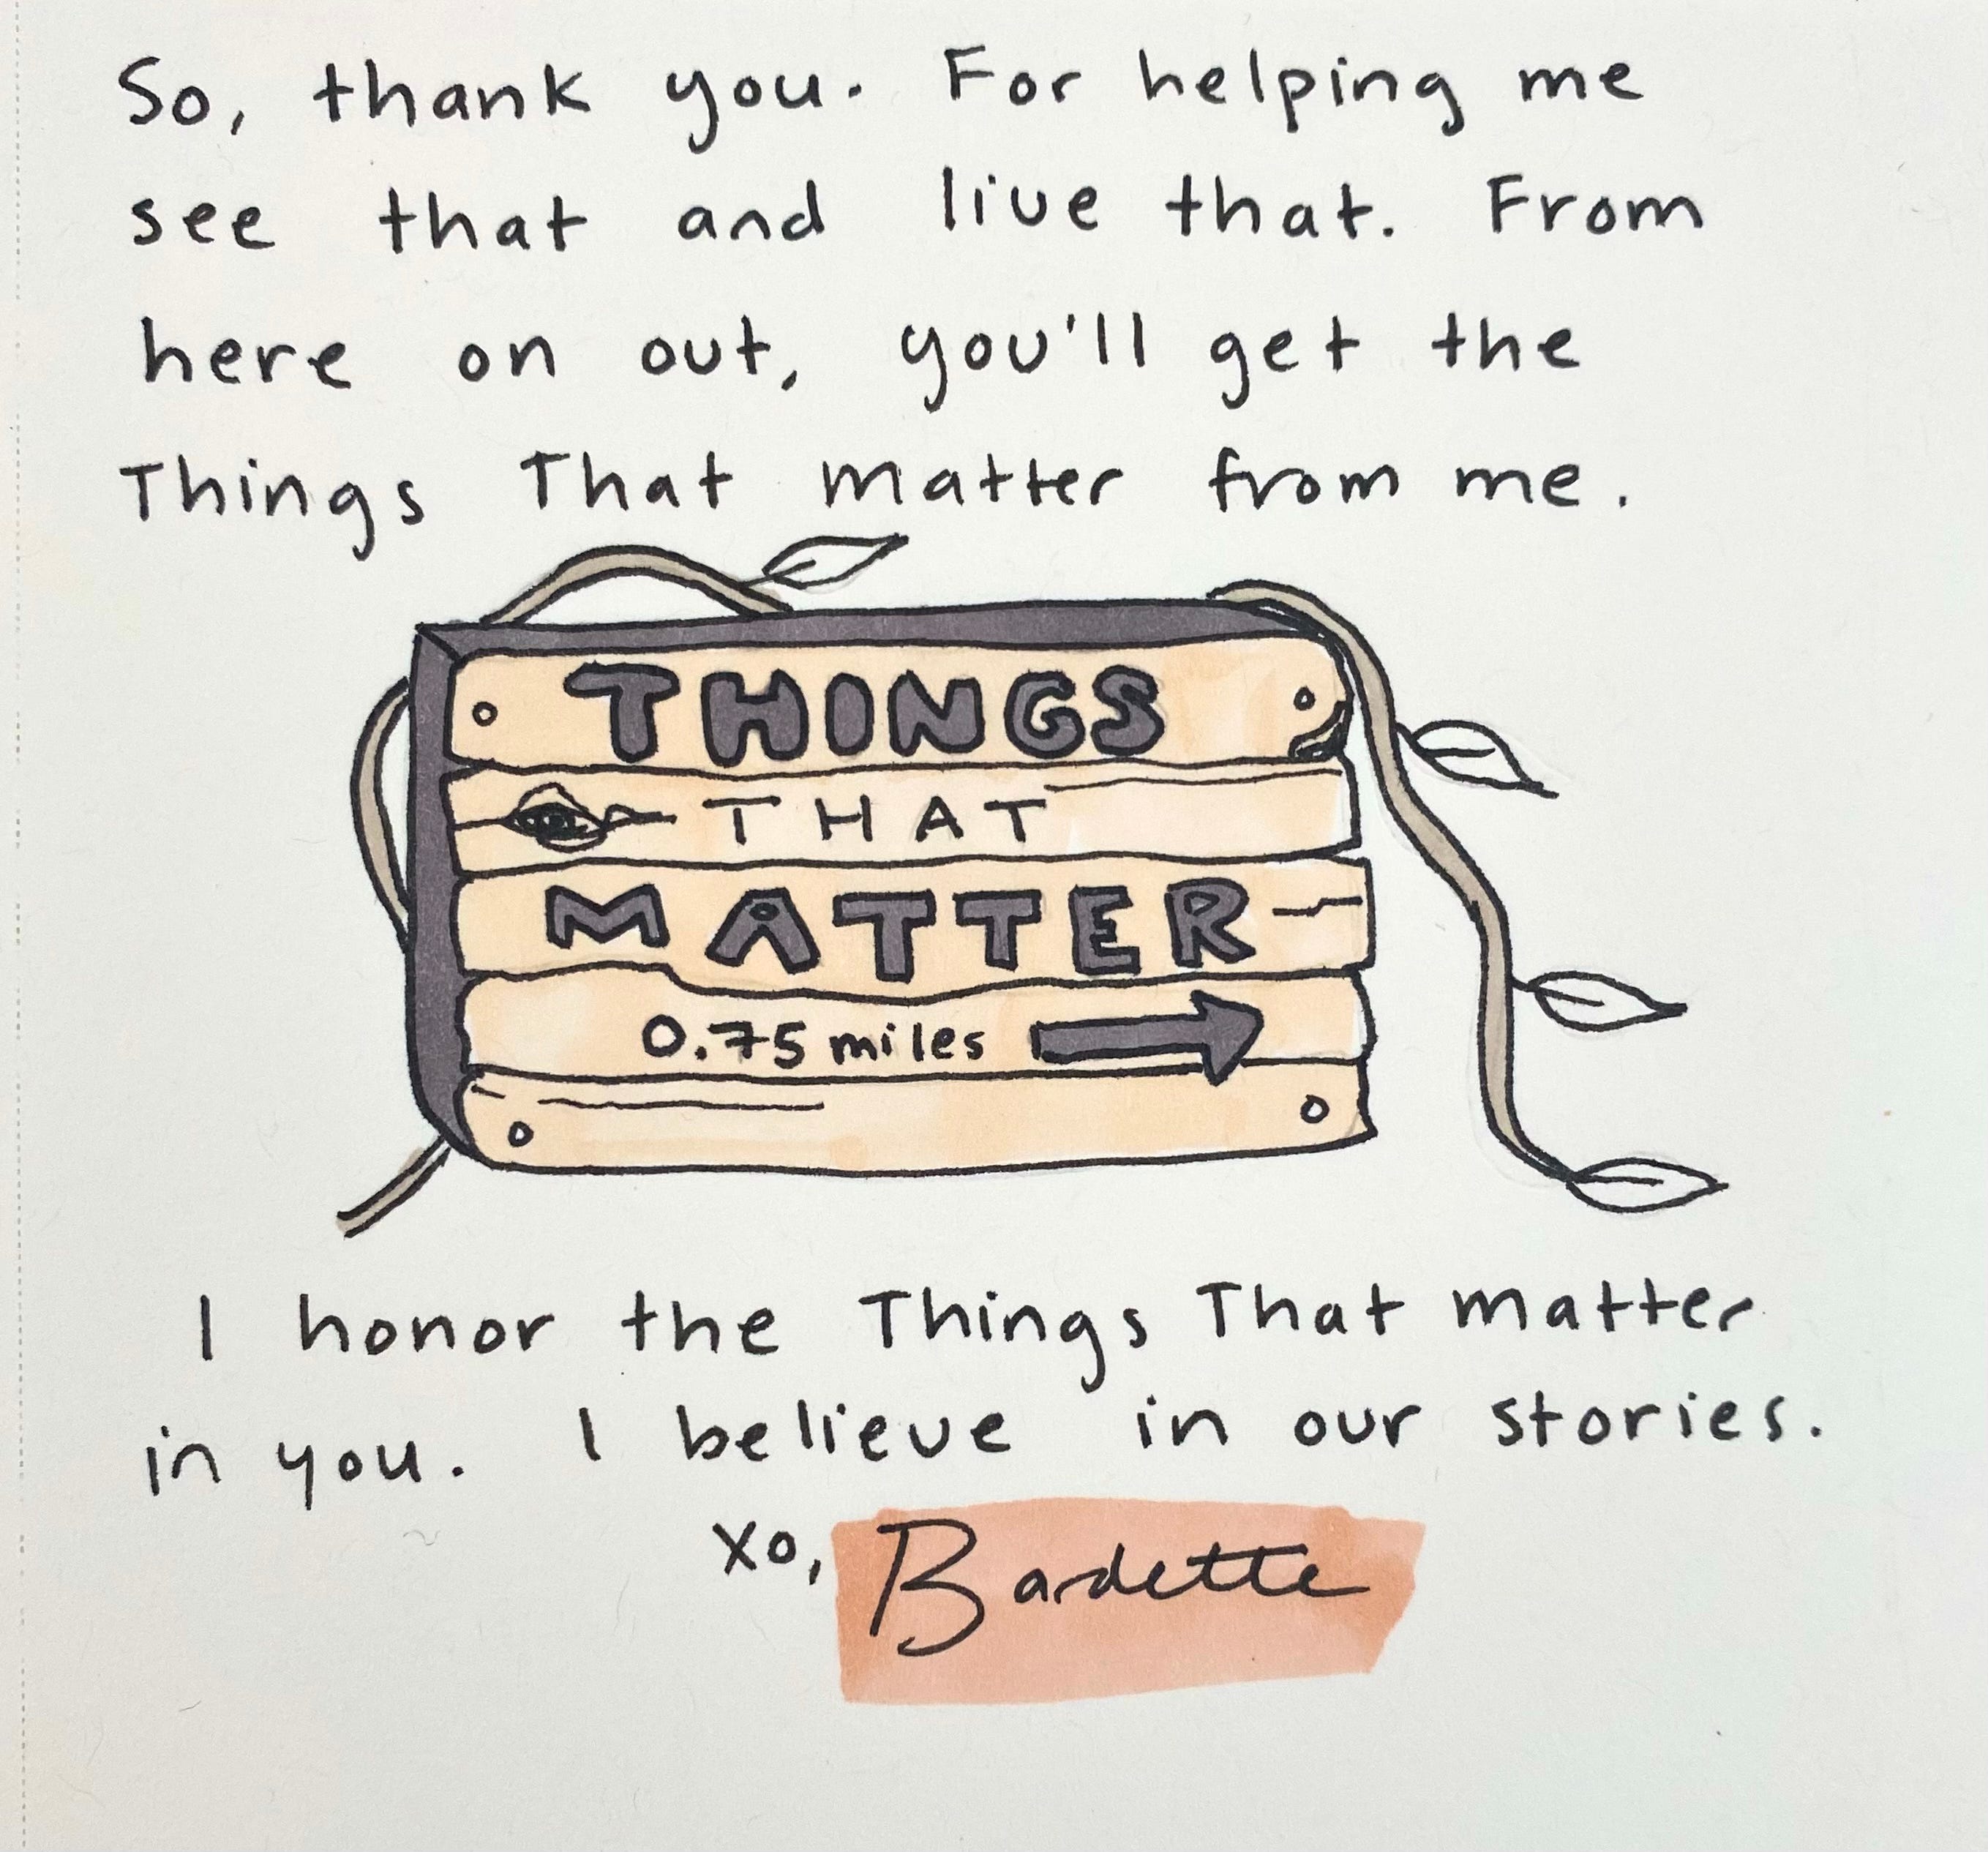 So, thank you. For helping me
see that and live that. From
here on out, you'll get the
Things That Matter from me.
THINGS
THAT
MATTER
0.75 miles
I honor the Things That Matter
in you. I believe in our stories.
xo, Bardette